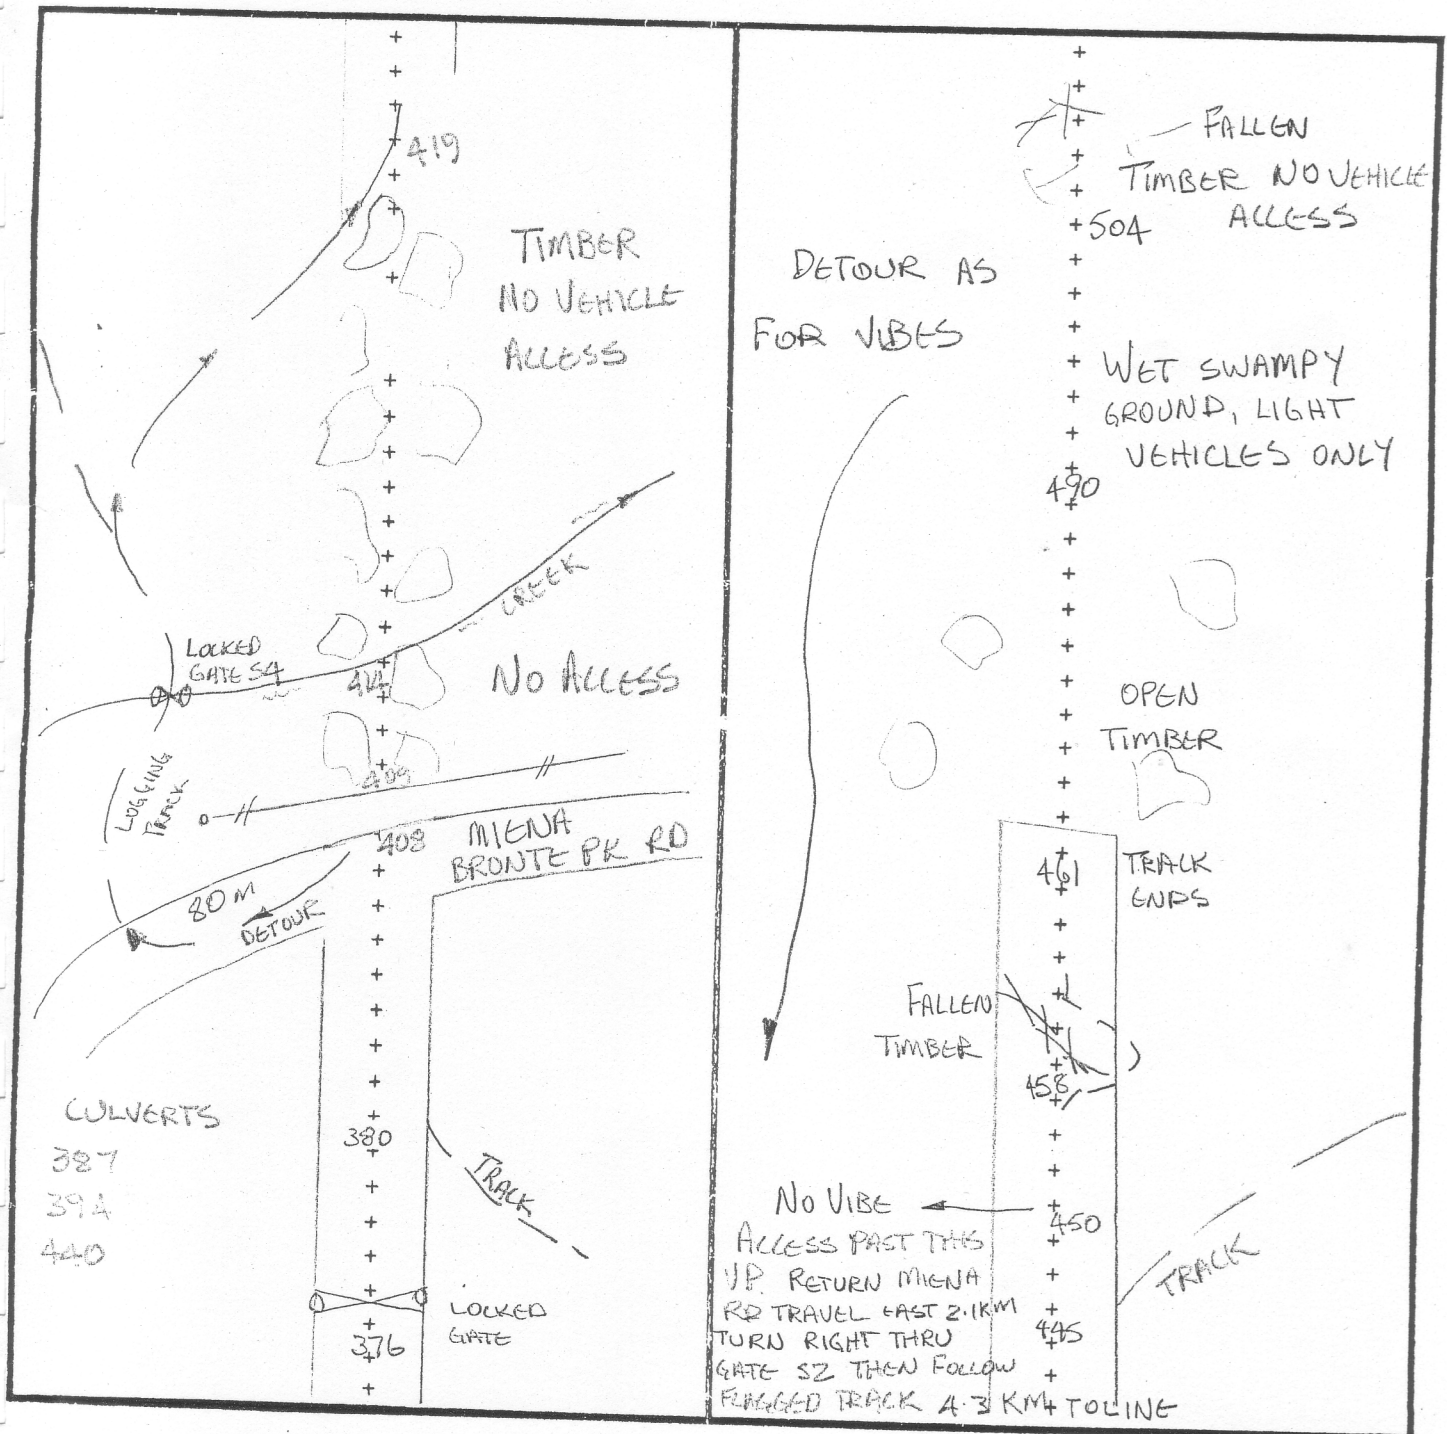 419
TIMBER
NO VEHICLE
ACCESS
CREEK
LOCKED
GATE S4
414
NO ACCESS
LOGGING
TRACK
409
408
MIENA
BRONTE PK RD
80 M
DETOUR
CULVERTS
387
394
440
380
TRACK
LOCKED
GATE
376
FALLEN
TIMBER NO VEHICLE
ACCESS
504
DETOUR AS
FOR VIBES
WET SWAMPY
GROUND, LIGHT
VEHICLES ONLY
490
OPEN
TIMBER
461
TRACK
ENDS
FALLEN
TIMBER
458
NO VIBE
450
ACCESS PAST THIS
V.P. RETURN MIENA
RD TRAVEL EAST 2.1KM
TURN RIGHT THRU
GATE S2 THEN FOLLOW
FLAGGED TRACK 4.3 KM TO LINE
445
TRACK